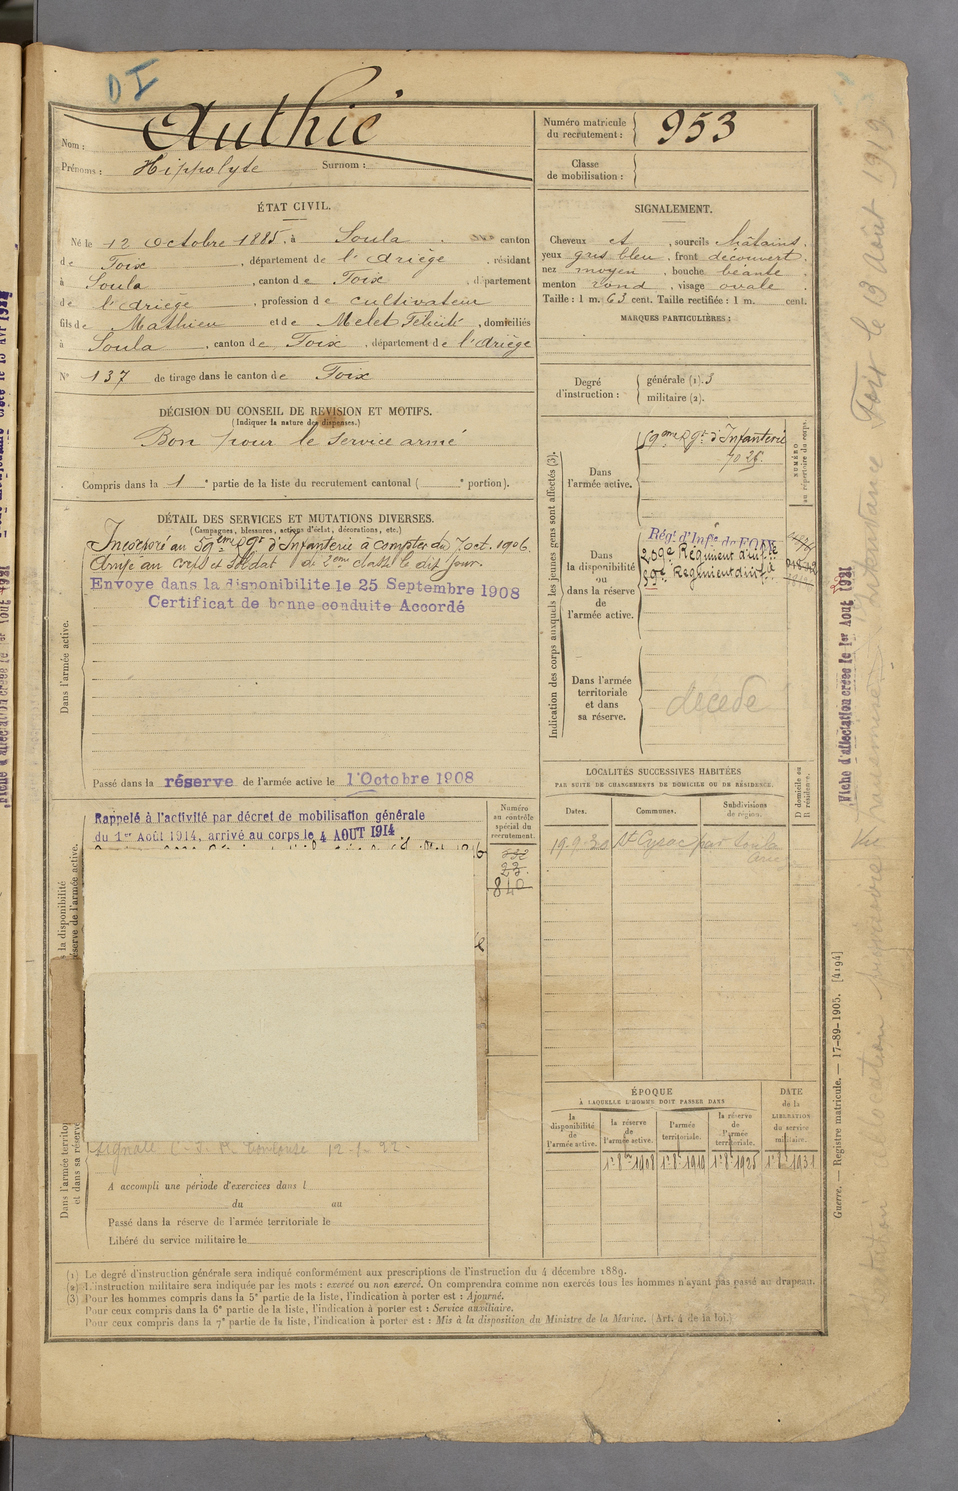 DI
Nom : Authié
Prénoms : Hippolyte Surnom :
Numéro matricule du recrutement : 953
Classe de mobilisation :
ÉTAT CIVIL.
Né le 12 Octobre 1885, à Soula, canton
de Foix, département de l'Ariège, résidant
à Soula, canton de Foix, département
de l'Ariège, profession de cultivateur
fils de Mathieu et de Melet Félicité, domiciliés
à Soula, canton de Foix, département de l'Ariège
N° 137 de tirage dans le canton de Foix
SIGNALEMENT.
Cheveux et, sourcils châtains,
yeux gris bleu, front découvert,
nez moyen, bouche béante,
menton rond, visage ovale.
Taille : 1 m. 63 cent. Taille rectifiée : 1 m. cent.
MARQUES PARTICULIÈRES :
Degré d'instruction : générale (1). 3
militaire (2).
DÉCISION DU CONSEIL DE REVISION ET MOTIFS.
(Indiquer la nature des dispenses.)
Bon pour le service armé
Compris dans la 1 e partie de la liste du recrutement cantonal ( e portion).
DÉTAIL DES SERVICES ET MUTATIONS DIVERSES.
(Campagnes, blessures, actions d'éclat, décorations, etc.)
Incorporé au 59eme Rgt d'Infanterie à compter du 7 oct. 1906.
Arrivé au corps et soldat de 2eme classe le dit jour.
Envoye dans la disponibilite le 25 Septembre 1908
Certificat de bonne conduite Accordé
Dans l'armée active.
Passé dans la réserve de l'armée active le 1 Octobre 1908
Rappelé à l'activité par décret de mobilisation générale
du 1er Août 1914, arrivé au corps le 4 AOUT 1914.
la disponibilité
réserve de l'armée active.
Numéro au contrôle spécial du recrutement.
840
Signalé C. S. R. Toulouse 12-1-22.
Dans l'armée territo
et dans sa réserve
A accompli une période d'exercices dans l
du au
Passé dans la réserve de l'armée territoriale le
Libéré du service militaire le
Indication des corps auxquels les jeunes gens sont affectés (3).
NUMÉRO au répertoire du corps.
Dans l'armée active.
59eme Rgt d'Infanterie
7026.
Dans la disponibilité ou dans la réserve de l'armée active.
Régt d'Infie de FOIX
259e Régiment d'infie
59e Régiment d'infie
Dans l'armée territoriale et dans sa réserve.
décédé
LOCALITÉS SUCCESSIVES HABITÉES
PAR SUITE DE CHANGEMENTS DE DOMICILE OU DE RÉSIDENCE.
Dates. Communes. Subdivisions de région. D domicile ou R résidence.
19.9.30 St Cyrac par Soula
ÉPOQUE
À LAQUELLE L'HOMME DOIT PASSER DANS
la disponibilité de l'armée active. la réserve de l'armée active. l'armée territoriale. la réserve de l'armée territoriale. DATE de la LIBÉRATION du service militaire.
1r 8bre 1908 1r 8 1919 1r 8 1925 1r 8 1931
Fiche d'affectation créée le 1er Août 1931
Foix le 13 août 1919
Guerre. — Registre matricule. — 17-89-1905. [4194]
(1) Le degré d'instruction générale sera indiqué conformément aux prescriptions de l'instruction du 4 décembre 1889.
(2) L'instruction militaire sera indiquée par les mots : exercé ou non exercé. On comprendra comme non exercés tous les hommes n'ayant pas passé au drapeau.
(3) Pour les hommes compris dans la 5e partie de la liste, l'indication à porter est : Ajourné.
Pour ceux compris dans la 6e partie de la liste, l'indication à porter est : Service auxiliaire.
Pour ceux compris dans la 7e partie de la liste, l'indication à porter est : Mis à la disposition du Ministre de la Marine. (Art. 4 de la loi.)